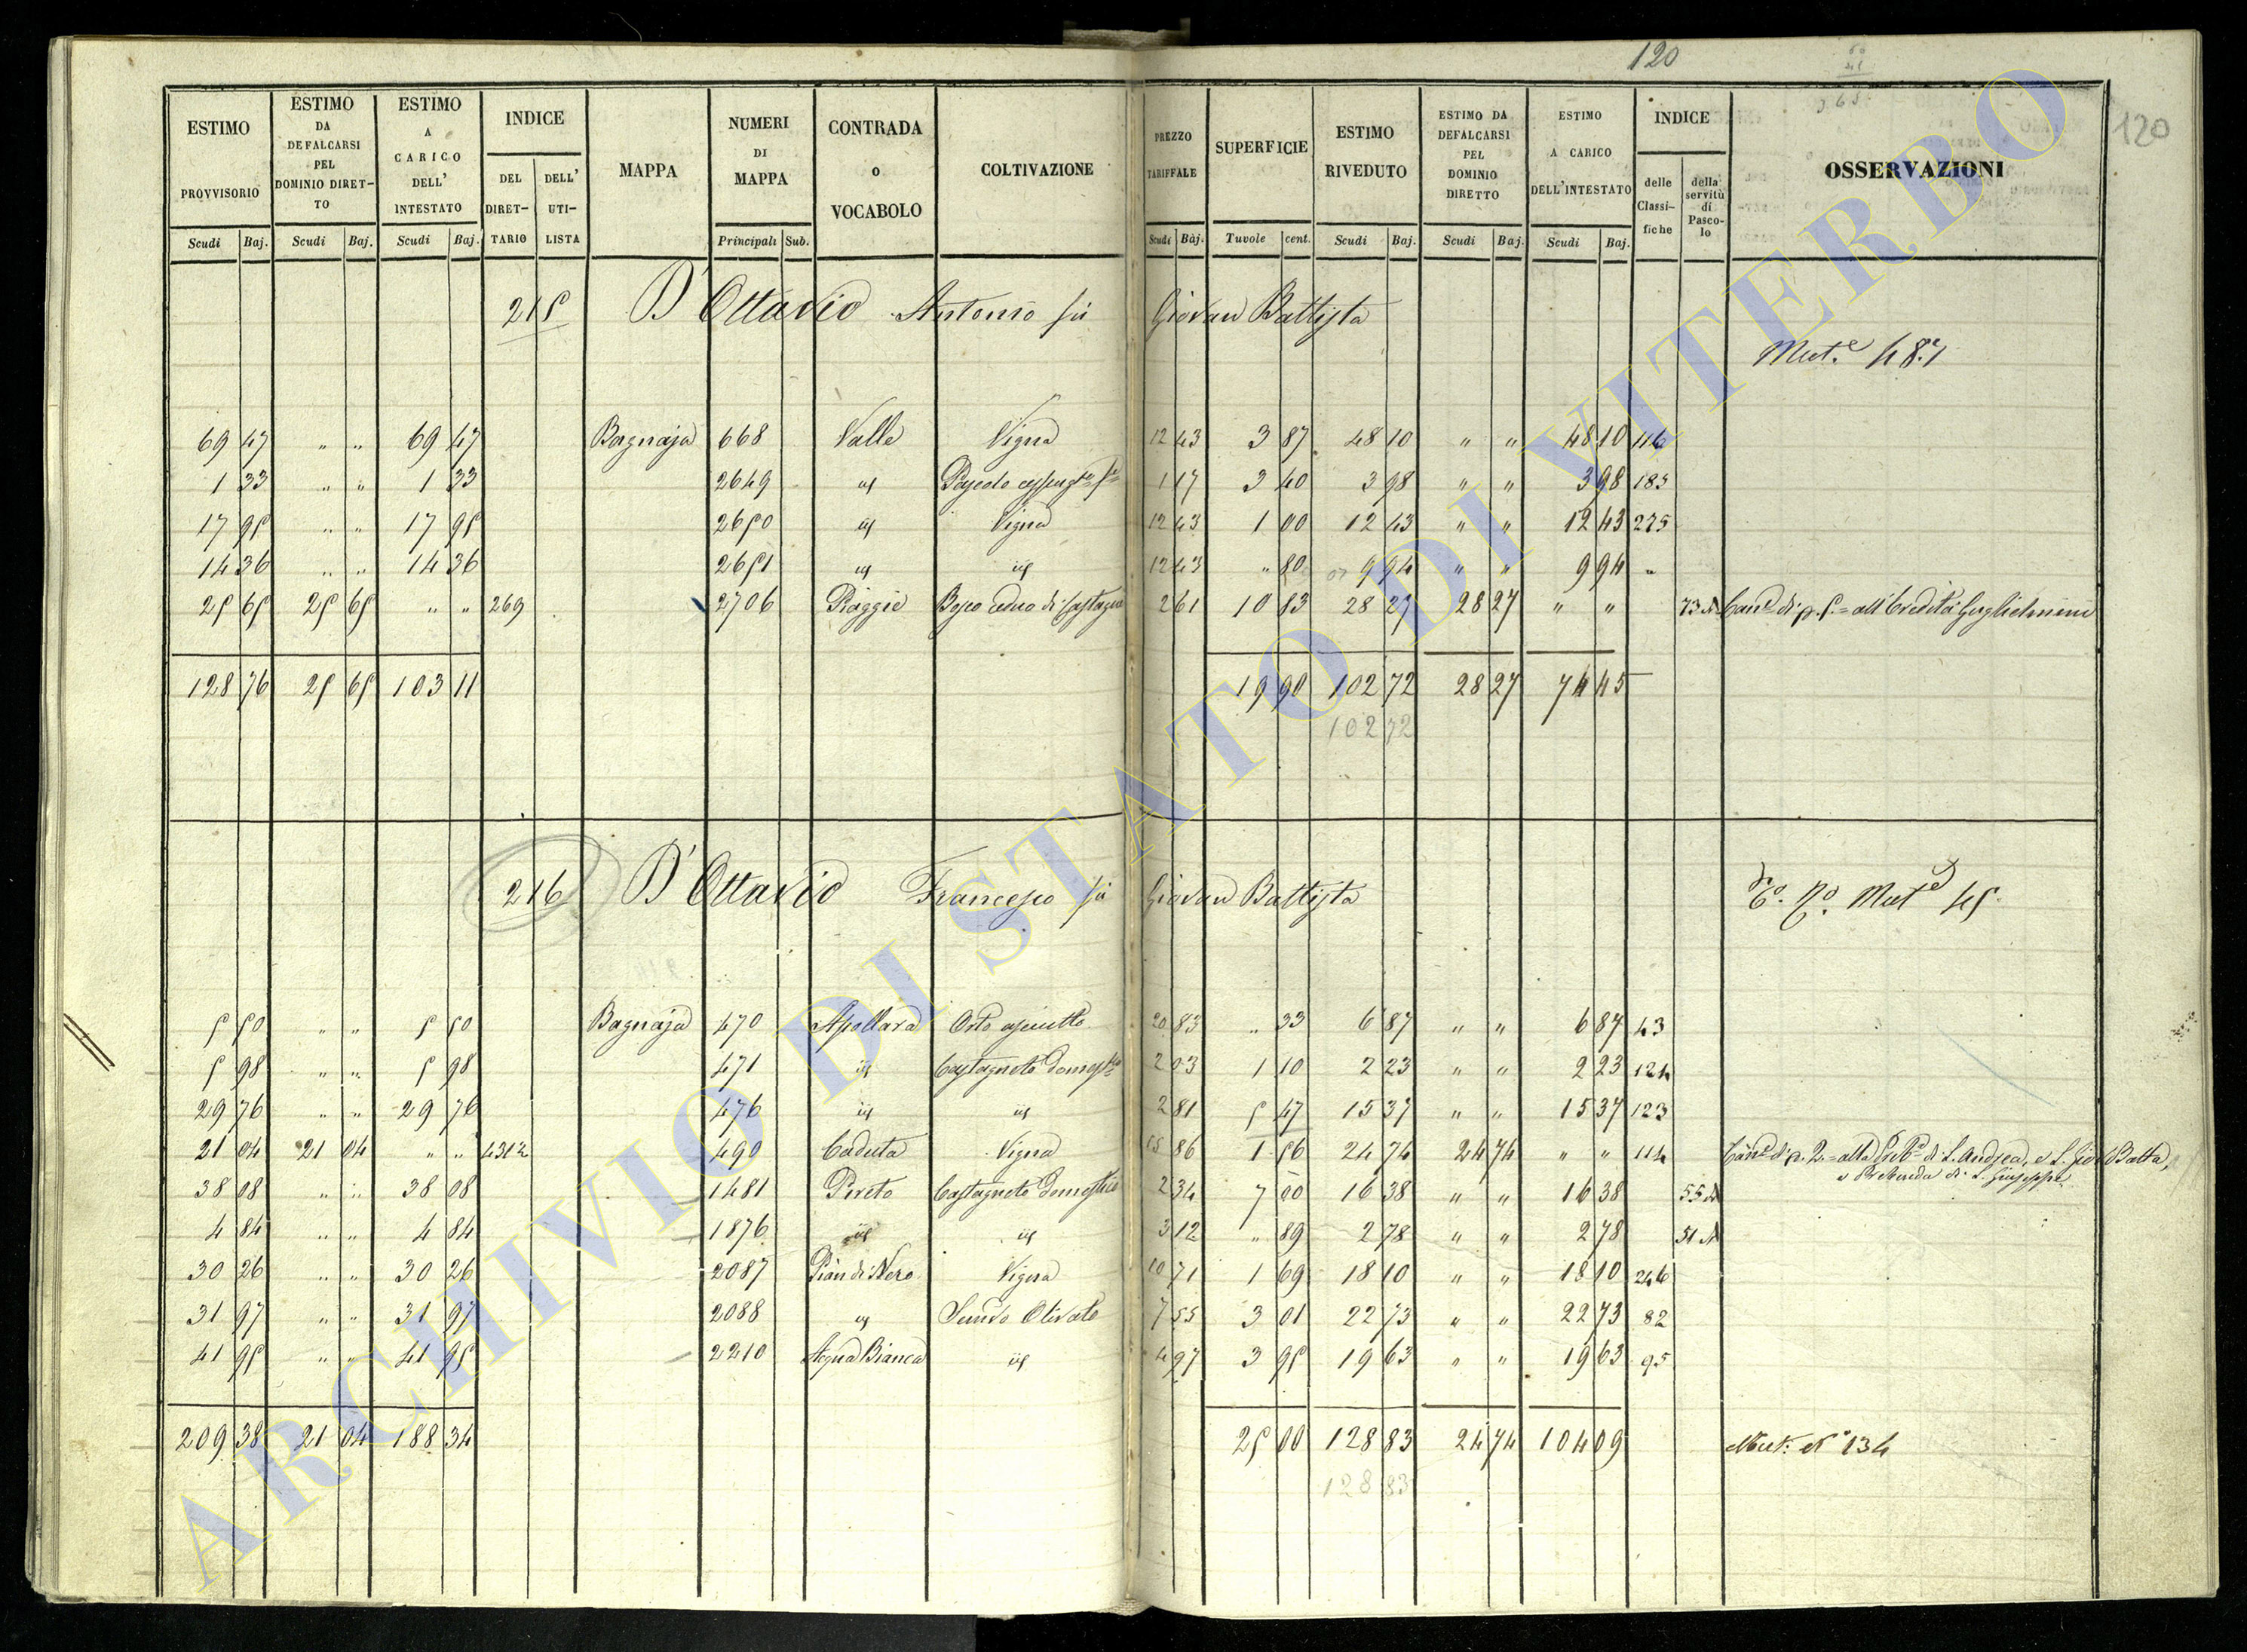 120
120
ESTIMO PROVVISORIO
ESTIMO DA DEFALCARSI PEL DOMINIO DIRET-TO
ESTIMO A CARICO DELL' INTESTATO
INDICE
DEL DIRET-TARIO
DELL' UTI-LISTA
MAPPA
NUMERI DI MAPPA
CONTRADA o VOCABOLO
COLTIVAZIONE
PREZZO TARIFFALE
SUPERFICIE
ESTIMO RIVEDUTO
ESTIMO DA DEFALCARSI PEL DOMINIO DIRETTO
ESTIMO A CARICO DELL'INTESTATO
INDICE
delle Classi-fiche
della servitù di Pasco-lo
OSSERVAZIONI
Scudi Baj. Scudi Baj. Scudi Baj. Principali Sub. Scudi Baj. Tuvole cent. Scudi Baj. Scudi Baj. Scudi Baj.
215 D'Ottavio Antonio fù Giovan Battista
Mut.e 48.
69 47 " " 69 47 Bagnaja 668 Valle Vigna 12 43 3 87 48 10 " " 48 10 116
1 33 " " 1 33 2649 id 1 17 3 40 3 98 " " 3 98 185
17 95 " " 17 95 2650 id Vigna 12 43 1 00 12 43 " " 12 43 275
14 36 " " 14 36 2651 id id 12 43 " 80 9 94 " " 9 94 "
25 65 25 65 " " 269 2706 Piaggie Bosco ceduo di Castagno 2 61 10 83 28 27 28 27 " " 73 A Can.e di p. 5 = all'Eredità Guglielmini
128 76 25 65 103 11 19 90 102 72 28 27 74 45
102 72
216 D'Ottavio Francesco fù Giovan Battista
Mut.e 45.
5 50 " " 5 50 Bagnaja 470 Apollara Orto asciutto 20 83 " 33 6 87 " " 6 87 43
5 98 " " 5 98 471 id Castagneto domest.o 2 03 1 10 2 23 " " 2 23 124
29 76 " " 29 76 476 id id 2 81 5 47 15 37 " " 15 37 123
21 04 21 04 " " 431 490 Caduta Vigna 15 86 1 56 24 74 24 74 " " 114 Can.e di p. 2. = alla Preb.a di S. Andrea, e S. Gio Batta,
e Prebenda di S. Giuseppe
38 08 " " 38 08 1481 Pereto Castagneto Domestico 2 34 7 00 16 38 " " 16 38 55 A
4 84 " " 4 84 1876 id id 3 12 " 89 2 78 " " 2 78 51 A
30 26 " " 30 26 2087 Pian di Nero Vigna 10 71 1 69 18 10 " " 18 10 246
31 97 " " 31 97 2088 id Semvo Olivato 7 55 3 01 22 73 " " 22 73 82
41 95 " " 41 95 2210 Acqua Bianca id 4 97 3 95 19 63 " " 19 63 95
209 38 21 04 188 34 25 00 128 83 24 74 104 09 Mut. N° 134
128 83
ARCHIVIO DI STATO DI VITERBO